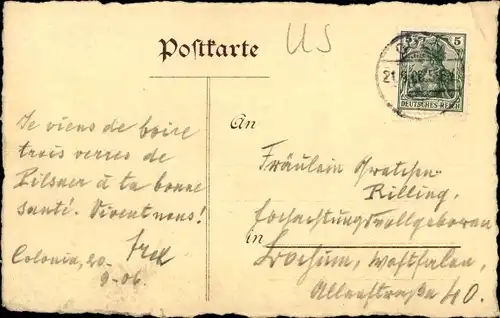 Postkarte
US
5
DEUTSCHES REICH
Je viens de boire
trois verres de
Pilsner à ta bonne
santé. Vivent nous!
Colonia, 20.
9-06.
An
Fräulein Gretchen
Rilling,
Hochachtungsvollgeboren
in Bochum, Westfalen,
Alleestraße 40.